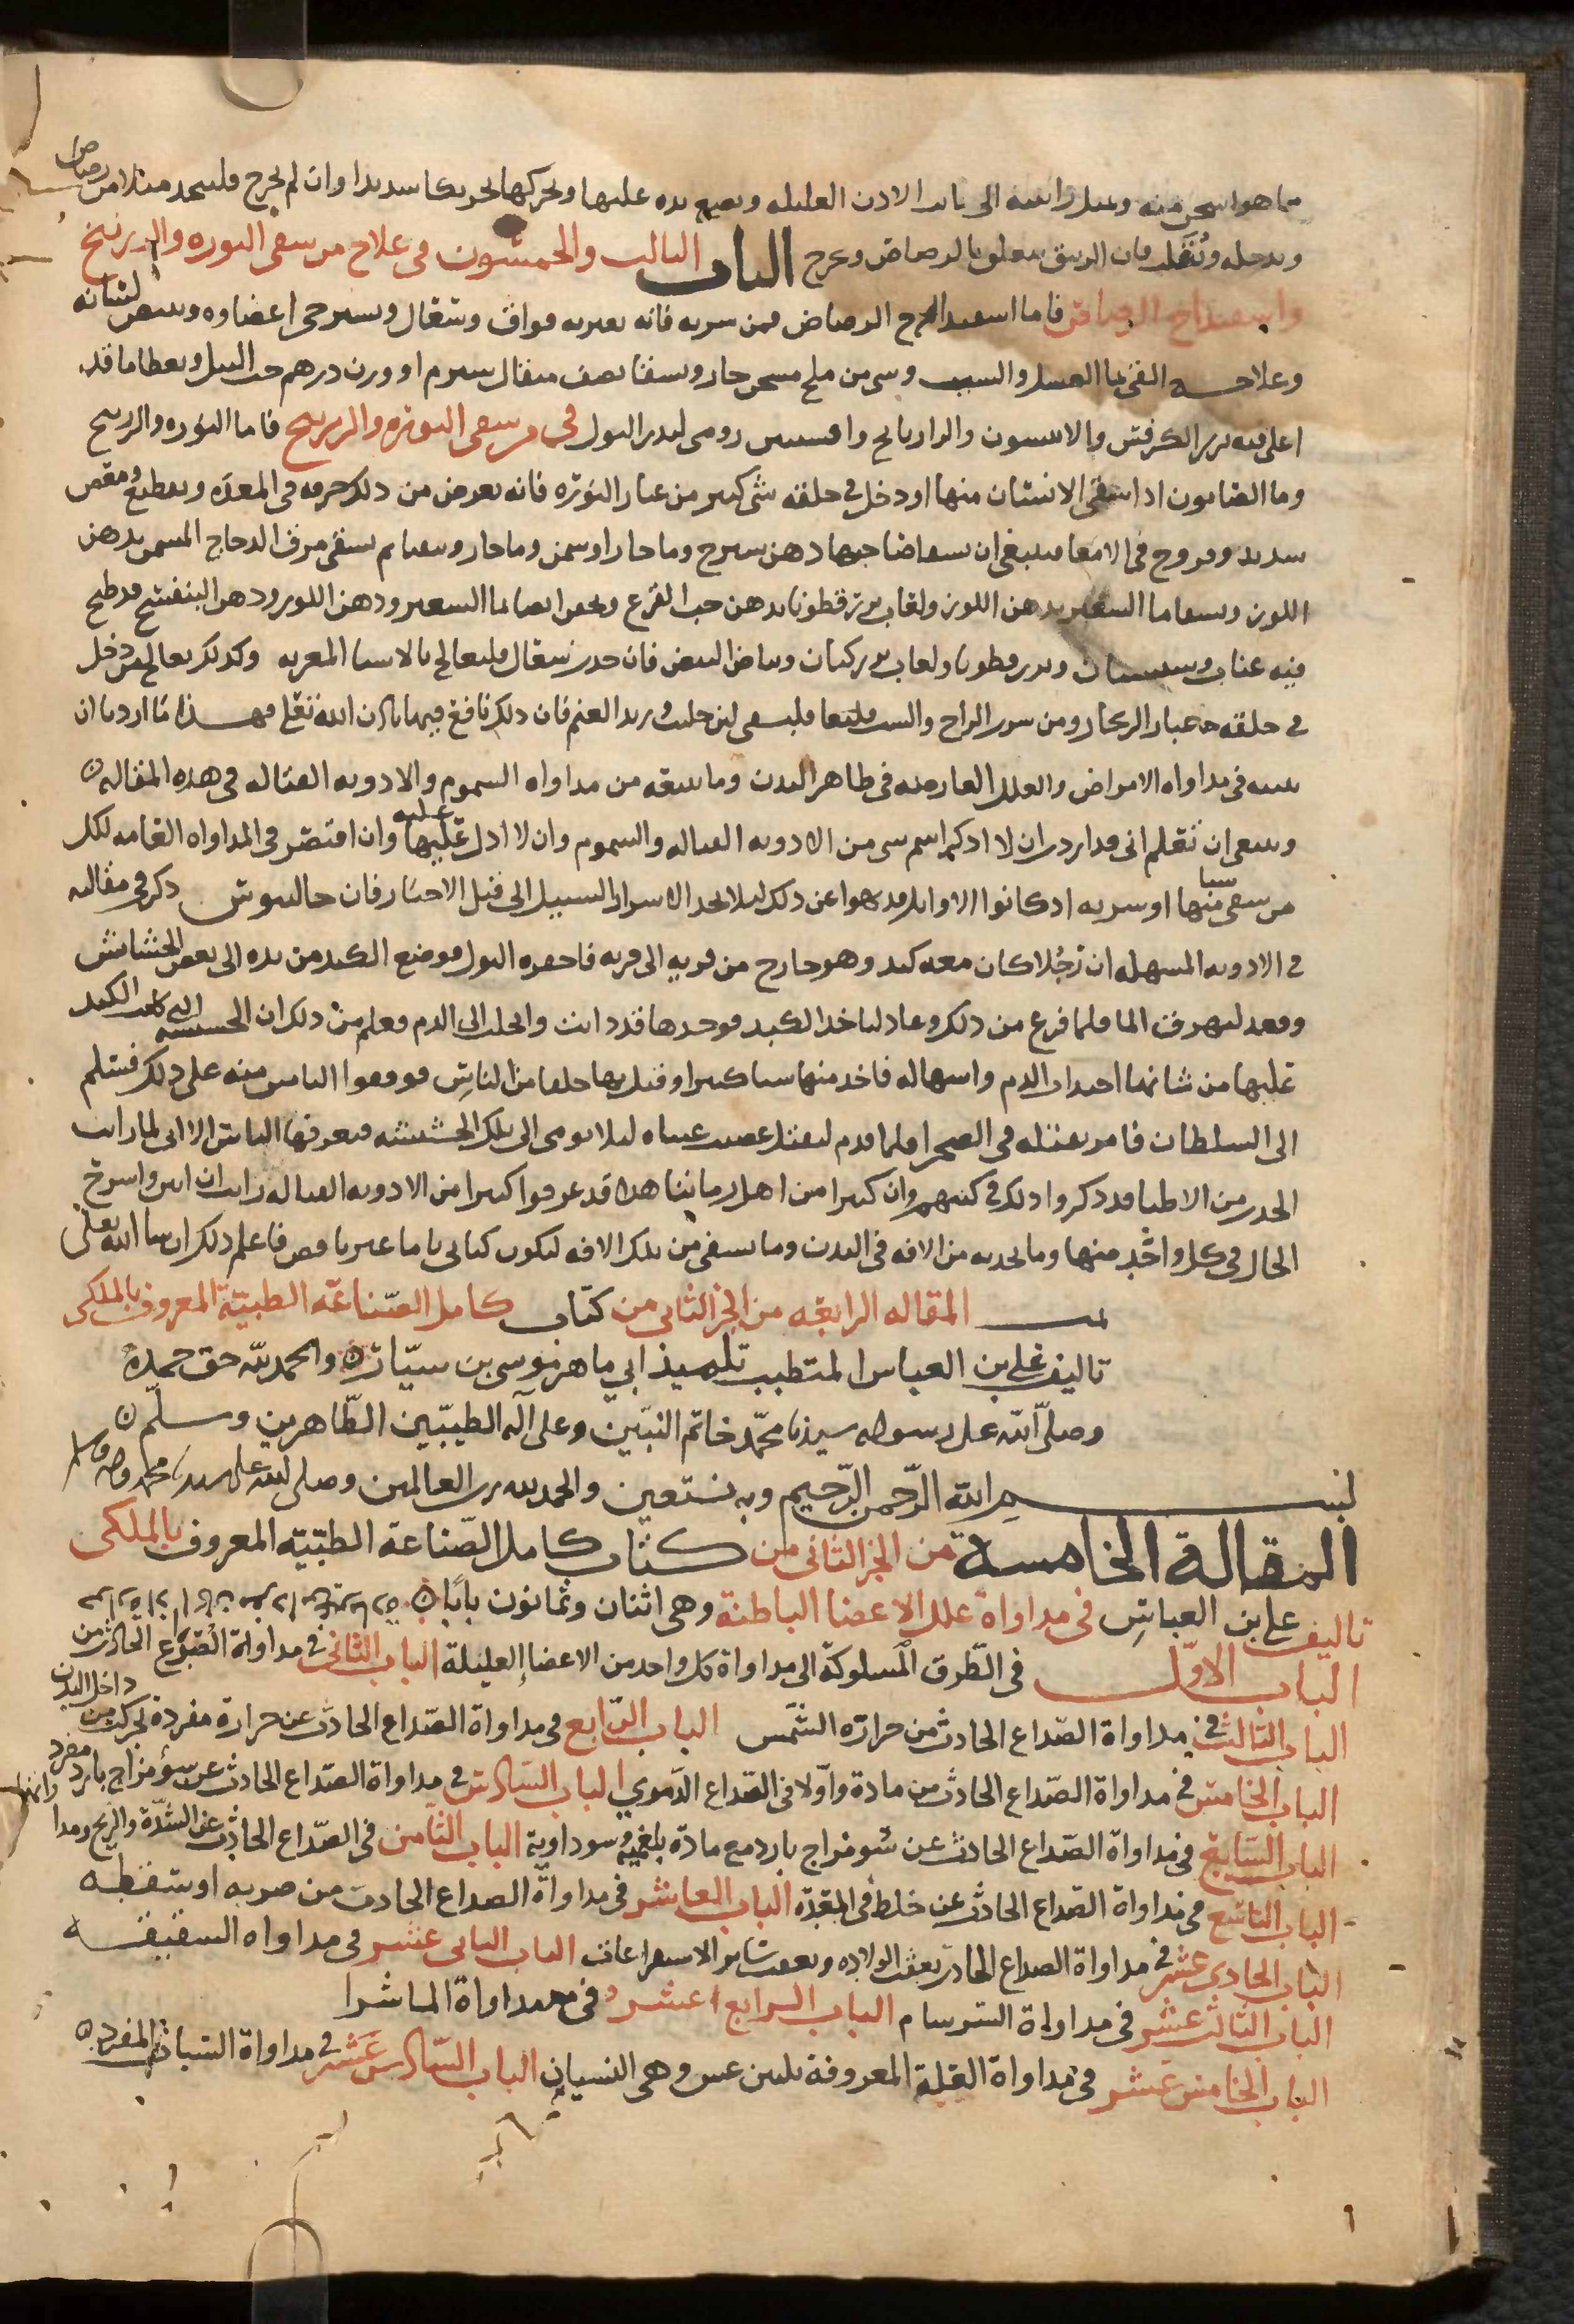 مما هو اسخن منه ويميل راسه الى باب الاذن العليله ويضع يده عليها ويحركها تحريكا شديدا وان لم يخرج فليتخذ ميلا من رصاص
ويدخله ويقلب فان الزيبق يتعلق بالرصاص ويخرج الباب الثالث والخمسون فى علاج من سقى النوره والزرنيخ
واسفيداج الرصاص فاما اسفيداج الرصاص فمن شربه فانه يعتريه فواق وسعال وتسترخى اعضاوه ويبيض لسانه
وعلاجه القى بما العسل والشبت وشى من ملح مسخن حار ويسقا نصف مثقال او وزن درهم حب النيل ويعطا ما قد
اغلى فيه بزر الكرفس والانيسون والرازيانج وافسنتين رومى ليدر البول فى من سقى النوره والزرنيخ فاما النوره والزرنيخ
وما الصابون اذا سقى الانسان منها او دخل فى حلقه شى كثير من غبار النوره فانه يعرض من ذلك حرقه فى المعده وتقطيع ومغص
شديد وقروح فى الامعا فينبغى ان يسقا صاحبها دهن شيرج وما حار او سمن وما حار ويتقيا ثم يسقى مرق الدجاج المسمن بدهن
اللوز ويسقا ما الشعير بدهن اللوز ولعاب بزر قطونا بدهن حب القرع ويحقن ايضا بما الشعير ودهن اللوز ودهن البنفسج قد طبخ
فيه عناب وسبستان وبزر قطونا ولعاب بزر كتان وبياض البيض فان حدث سعال فليعالج بالاشيا المغريه وكذلك يعالج من دخل
فى حلقه غبار الزنجار ومن شرب الزاج والشب فليتقيا فليسقى لبن حليب وزبد الغنم فان ذلك نافع فيها باذن الله تعلى فهذا ما اردنا ان
نبينه فى مداواه الامراض والعلل العارضه فى ظاهر البدن وما يتبعه من مداواه السموم والادويه القتاله فى هذه المقاله
وينبغى ان تعلم انى قد اردت ان لا اذكر اسم شى من الادويه القتاله والسموم وان لا ادل عليها عليه وان اقتصر فى المداواه العامه لكل
من سقى شيا منها او شربه اذ كانوا الاوايل قد نهوا عن ذلك ليلا تجد الاشرار السبيل الى قتل الاخيار فان جالينوس ذكر فى مقالته
فى الادويه المسهله ان رجلا كان معه كبد وهو خارج من قريه الى قريه فاحقره البول فوضع الكبد من يده الى بعض الحشائش
وقعد ليهرق الما فلما فرغ من ذلك وعاد لياخذ الكبد فوجدها قد ذابت وانحلت الى الدم فعلم من ذلك ان الحشيشه التى كانت الكبد
عليها من شانها احدار الدم واسهاله فاخذ منها شيا كثيرا وقتل بها خلقا من الناس فوقفوا الناس منه على ذلك فسلم
الى السلطان فامر بقتله فى الصحرا فلما قدم ليقتل عصبت عيناه ليلا يومى الى تلك الحشيشه فيعرفها الناس الا انى لما رايت
الحدث من الاطبا قد ذكروا ذلك فى كتبهم وان كثيرا من اهل زماننا هذا قد عرفوا كثيرا من الادويه القتاله رايت ان ابين واشرح
الحال فى كل واحد منها وما تحدثه من الافه فى البدن وما يشفى من تلك الافه ليكون كتابى تاما غير ناقص فاعلم ذلك ان شا الله تعلى
تمت المقاله الرابعه من الجز الثانى من كتاب كامل الصناعه الطبيه المعروف بالملكى
تاليف على بن العباس المتطبب تلميذ ابى ماهر موسى بن سيار والحمد لله حق حمده
وصلى الله على رسوله سيدنا محمد خاتم النبيين وعلى اله الطيبين الطاهرين وسلم
بسم الله الرحمن الرحيم وبه نستعين والحمد لله رب العالمين وصلى الله على سيدنا محمد واله وسلم
المقالة الخامسة من الجز الثانى من كتاب كامل الصناعة الطبية المعروف بالملكى
تاليف على بن العباس فى مداواة علل الاعضا الباطنة وهى اثنان وثمانون بابا
الباب الاول فى الطرق المسلوكة الى مداواة كل واحد من الاعضا العليلة الباب الثانى فى مداواة الصداع الحادث من داخل البدن
الباب الثالث فى مداواة الصداع الحادث من حرارة الشمس الباب الرابع فى مداواة الصداع الحادث عن حرارة مفردة
الباب الخامس فى مداواة الصداع الحادث من مادة واولا فى الصداع الدموى الباب السادس فى مداواة الصداع الحادث عن سؤ مزاج بارد مفرد
الباب السابع فى مداواة الصداع الحادث عن سو مزاج بارد مع مادة بلغمية وسوداوية الباب الثامن فى الصداع الحادث عن السدة والريح
الباب التاسع فى مداواة الصداع الحادث عن خلط فى المعدة الباب العاشر فى مداواة الصداع الحادث من ضربه او سقطه
الباب الحادى عشر فى مداواة الصداع الحادث بعقب الولاده وبعقب سائر الاستفراغات الباب الثانى عشر فى مداواه الشقيقه
الباب الثالث عشر فى مداواة السرسام الباب الرابع عشر فى مداواة الماشرا
الباب الخامس عشر فى مداواة العلة المعروفة بليثرغس وهى النسيان الباب السادس عشر فى مداواة السبات المفرد